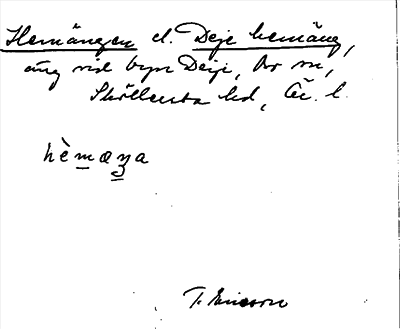 Hemängen el. Deje hemäng,
äng vid byn Deje, Bo sn,
Sköllersta hd, Ör. l.
hèmæŋa
T. Ericsson